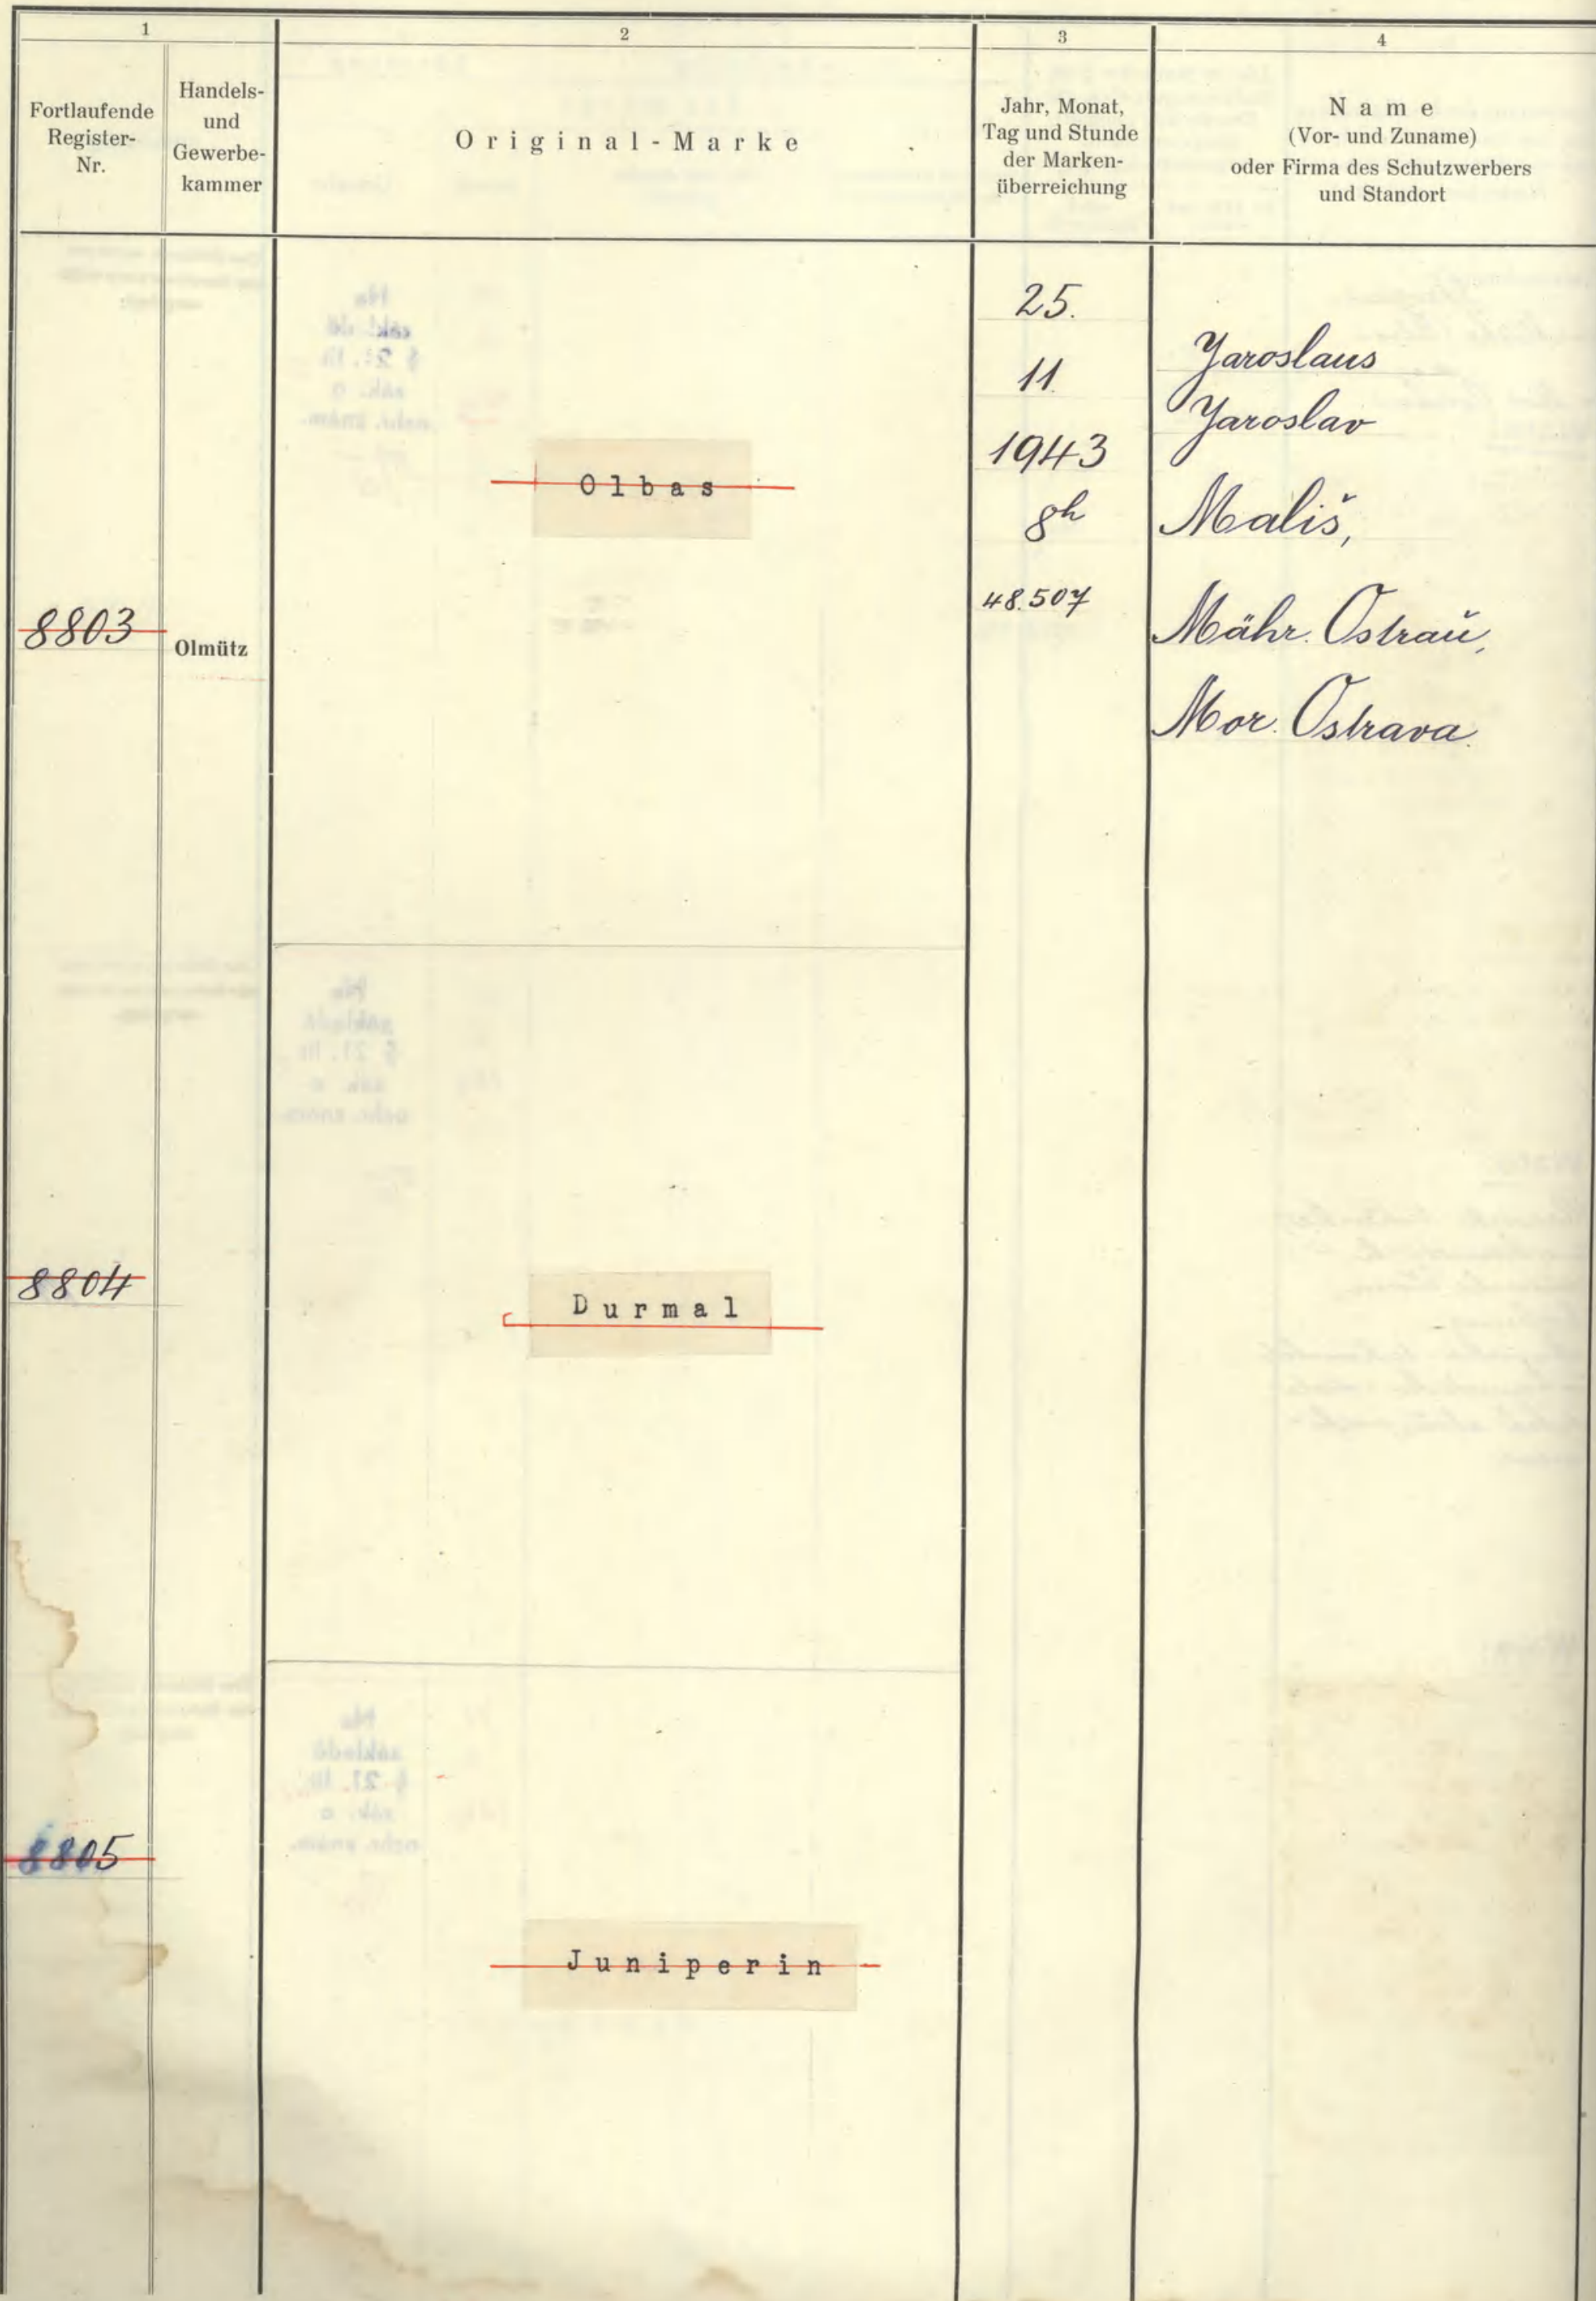 1
2
3
4
Fortlaufende
Register-
Nr.
Handels-
und
Gewerbe-
kammer
Original-Marke
Jahr, Monat,
Tag und Stunde
der Marken-
überreichung
Name
(Vor- und Zuname)
oder Firma des Schutzwerbers
und Standort
8803
Olmütz
Olbas
25.
11.
1943
8h
48.507
Jaroslaus
Jaroslav
Mališ,
Mähr. Ostrau,
Mor. Ostrava.
8804
Durmal
8805
Juniperin